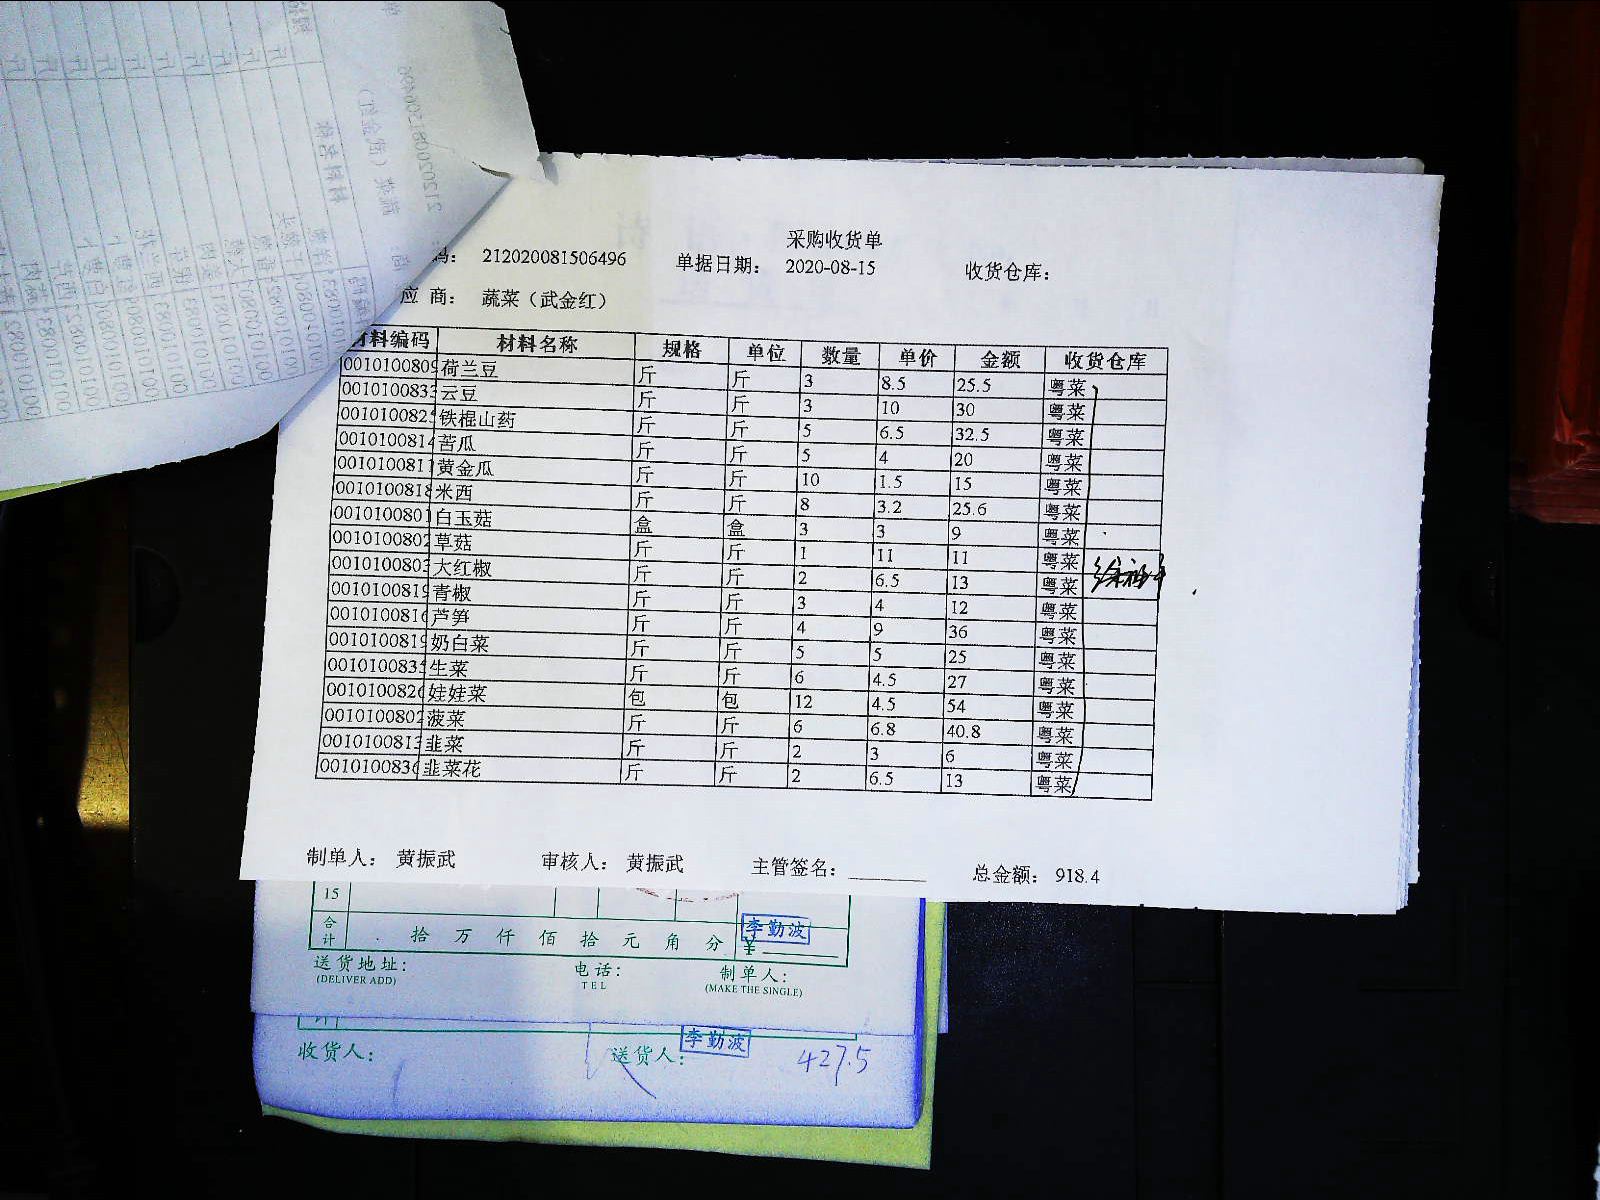 采购收货单
码： 212020081506496 单据日期： 2020-08-15 收货仓库：
应 商： 蔬菜（武金红）
材料编码 材料名称 规格 单位 数量 单价 金额 收货仓库
0010100809 荷兰豆 斤 斤 3 8.5 25.5 粤菜
001010083 云豆 斤 斤 3 10 30 粤菜
001010082 铁棍山药 斤 斤 5 6.5 32.5 粤菜
0010100814 苦瓜 斤 斤 5 4 20 粤菜
001010081 黄金瓜 斤 斤 10 1.5 15 粤菜
0010100818 米西 斤 斤 8 3.2 25.6 粤菜
001010080 白玉菇 盒 盒 3 3 9 粤菜
0010100802 草菇 斤 斤 1 11 11 粤菜
0010100803 大红椒 斤 斤 2 6.5 13 粤菜
0010100819 青椒 斤 斤 3 4 12 粤菜
0010100816 芦笋 斤 斤 4 9 36 粤菜
0010100819 奶白菜 斤 斤 5 5 25 粤菜
001010083 生菜 斤 斤 6 4.5 27 粤菜
0010100826 娃娃菜 包 包 12 4.5 54 粤菜
0010100802 菠菜 斤 斤 6 6.8 40.8 粤菜
0010100813 韭菜 斤 斤 2 3 6 粤菜
0010100836 韭菜花 斤 斤 2 6.5 13 粤菜
制单人： 黄振武 审核人： 黄振武 主管签名： 总金额： 918.4
15
合计 拾 万 仟 佰 拾 元 角 分 ¥ 李勤波
送货地址： 电话： 制单人：
(DELIVER ADD) TEL (MAKE THE SINGLE)
收货人： 送货人： 李勤波 427.5